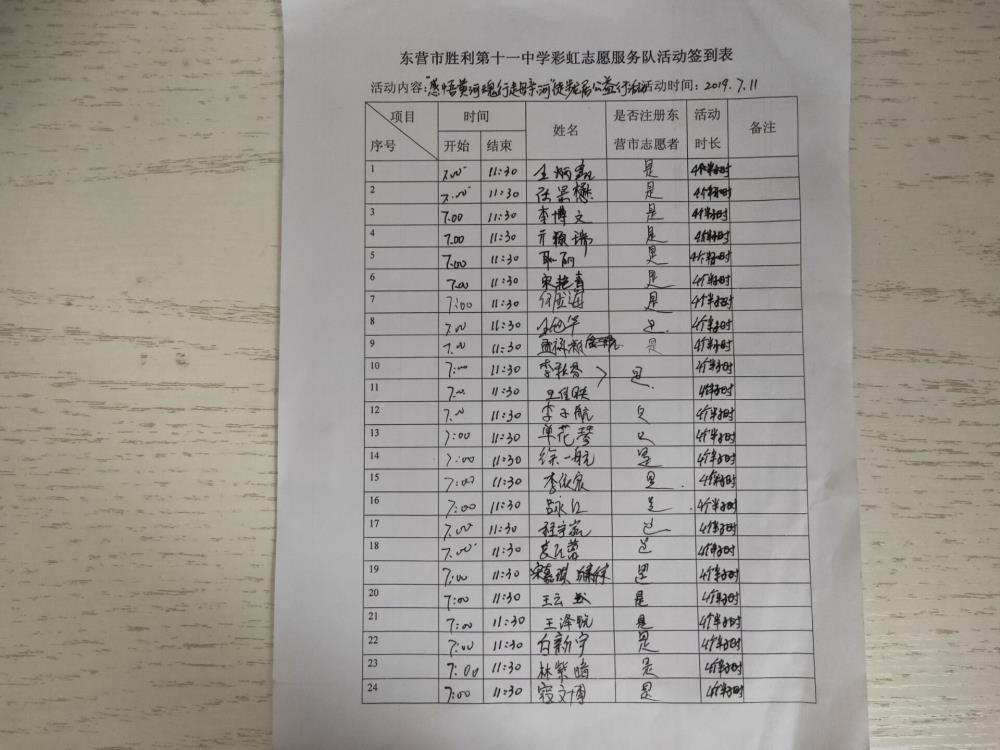 东营市胜利第十一中学彩虹志愿服务队活动签到表
活动内容："感悟黄河魂行走母亲河"徒步公益行活动 活动时间：2019.7.11
项目 时间 姓名 是否注册东 活动 备注
序号 开始 结束 营市志愿者 时长
1 7:00 11:30 是 4个半小时
2 7:00 11:30 张景懋 是 4个半小时
3 7.00 11:30 李博文 是 4个半小时
4 7.00 11:30 是 4个半小时
5 7:00 11:30 耿丽 是 4个半小时
6 7:00 11:30 宋艳青 是 4个半小时
7 7:00 11:30 是 4个半小时
8 7:00 11:30 是 4个半小时
9 7:00 11:30 是 4个半小时
10 7:00 11:30 李秋香 是 4个半小时
11 7:00 11:30 4个半小时
12 7:00 11:30 李子航 4个半小时
13 7:00 11:30 单花琴 4个半小时
14 7:00 11:30 徐一航 是 4个半小时
15 7:00 11:30 李依宸 是 4个半小时
16 7:00 11:30 是 4个半小时
17 7:00 11:30 是 4个半小时
18 7:00 11:30 是 4个半小时
19 7:00 11:30 宋嘉琪 是 4个半小时
20 7:00 11:30 王云 是 4个半小时
21 7:00 11:30 王泽皖 是 4个半小时
22 7:00 11:30 白新宇 是 4个半小时
23 7:00 11:30 林紫晴 是 4个半小时
24 7:00 11:30 寇文博 是 4个半小时